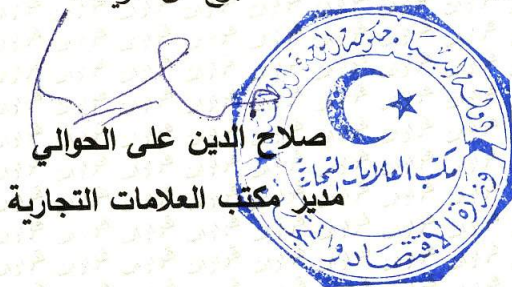 صلاح الدين على الحوالي
مدير مكتب العلامات التجارية
دولة ليبيا . حكومة الوحدة الوطنية
مكتب العلامات التجارية
وزارة الاقتصاد والتجارة